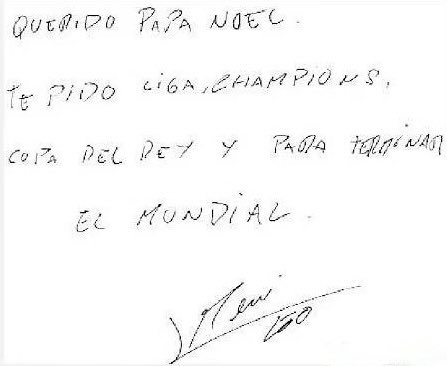 QUERIDO PAPA NOEL.
TE PIDO LIGA, CHAMPIONS,
COPA DEL REY Y PARA TERMINAR
EL MUNDIAL.
Messi
LEO